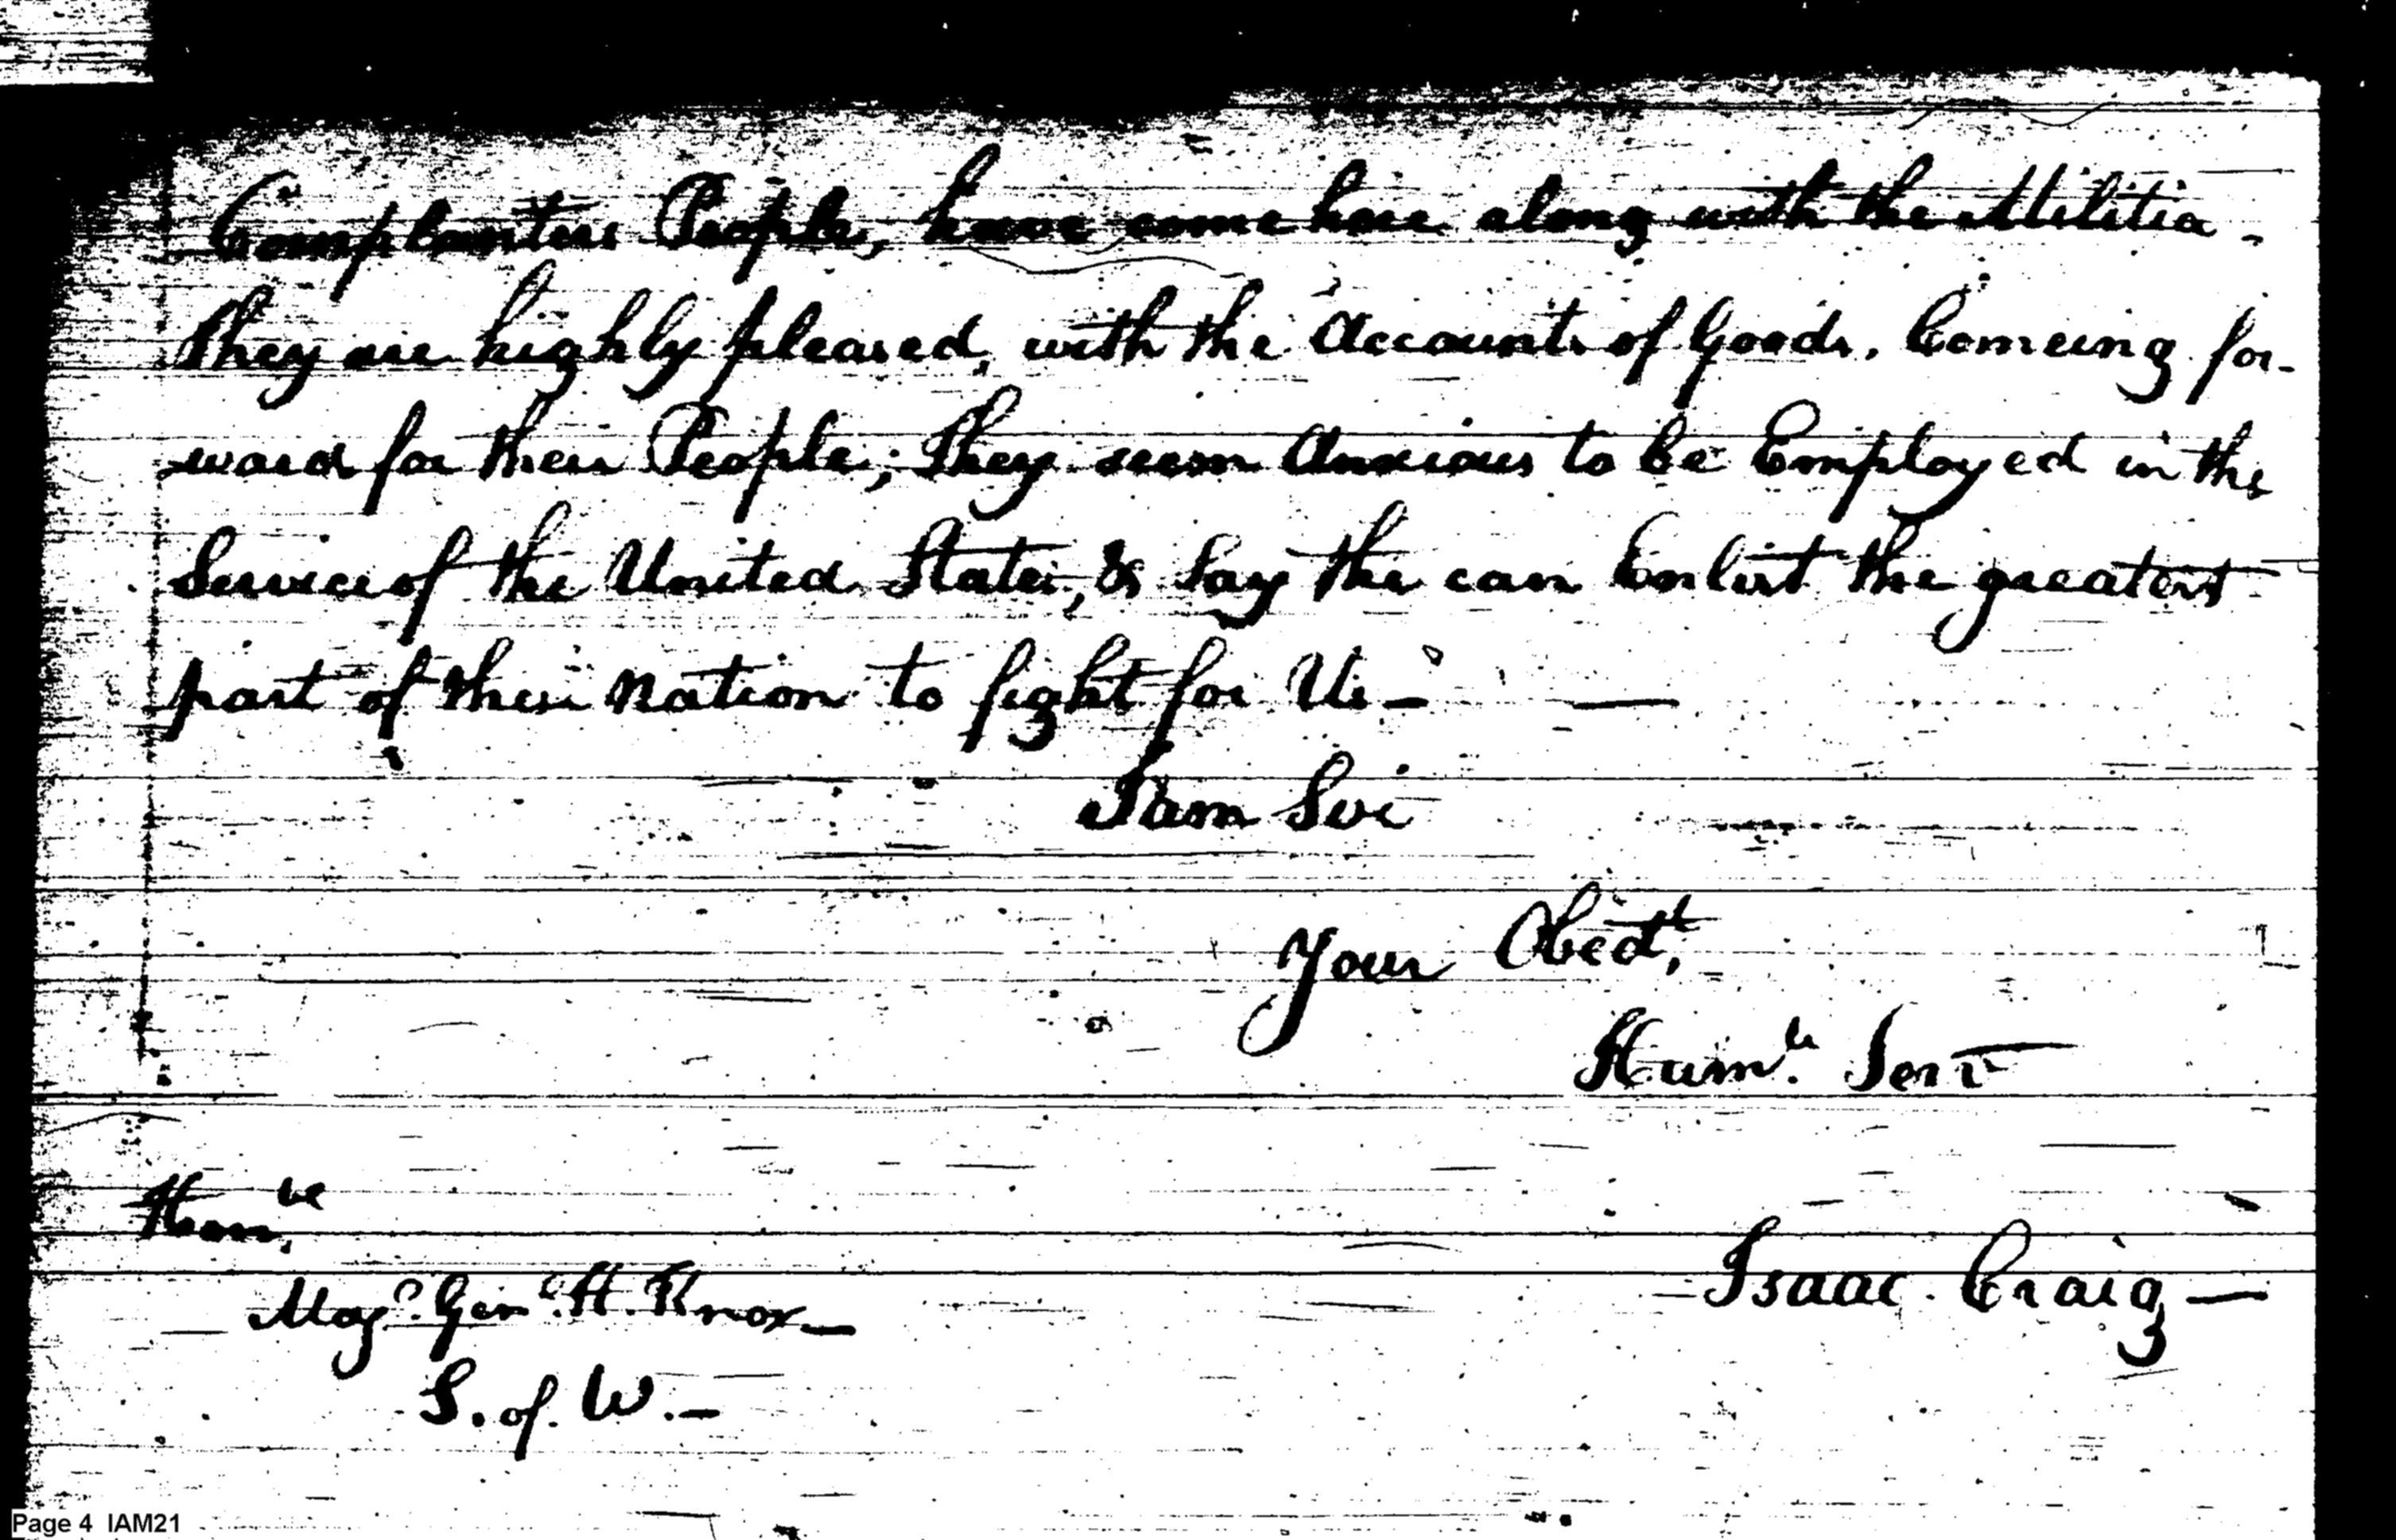 Cornplanters People, have come here along with the Militia -
They are highly pleased, with the Accounts of Goods, Comeing for-
ward for their People; They seem Anxious to be Employed in the
Service of the United States, & Say the can Enlist the greatest
part of their Nation to fight for Us -
I am Sir
Your Obedt,
Humle. Servt
Honble.
Isaac Craig —
Majr. Genl. H. Knox —
S. of. W. —
Page 4 IAM21